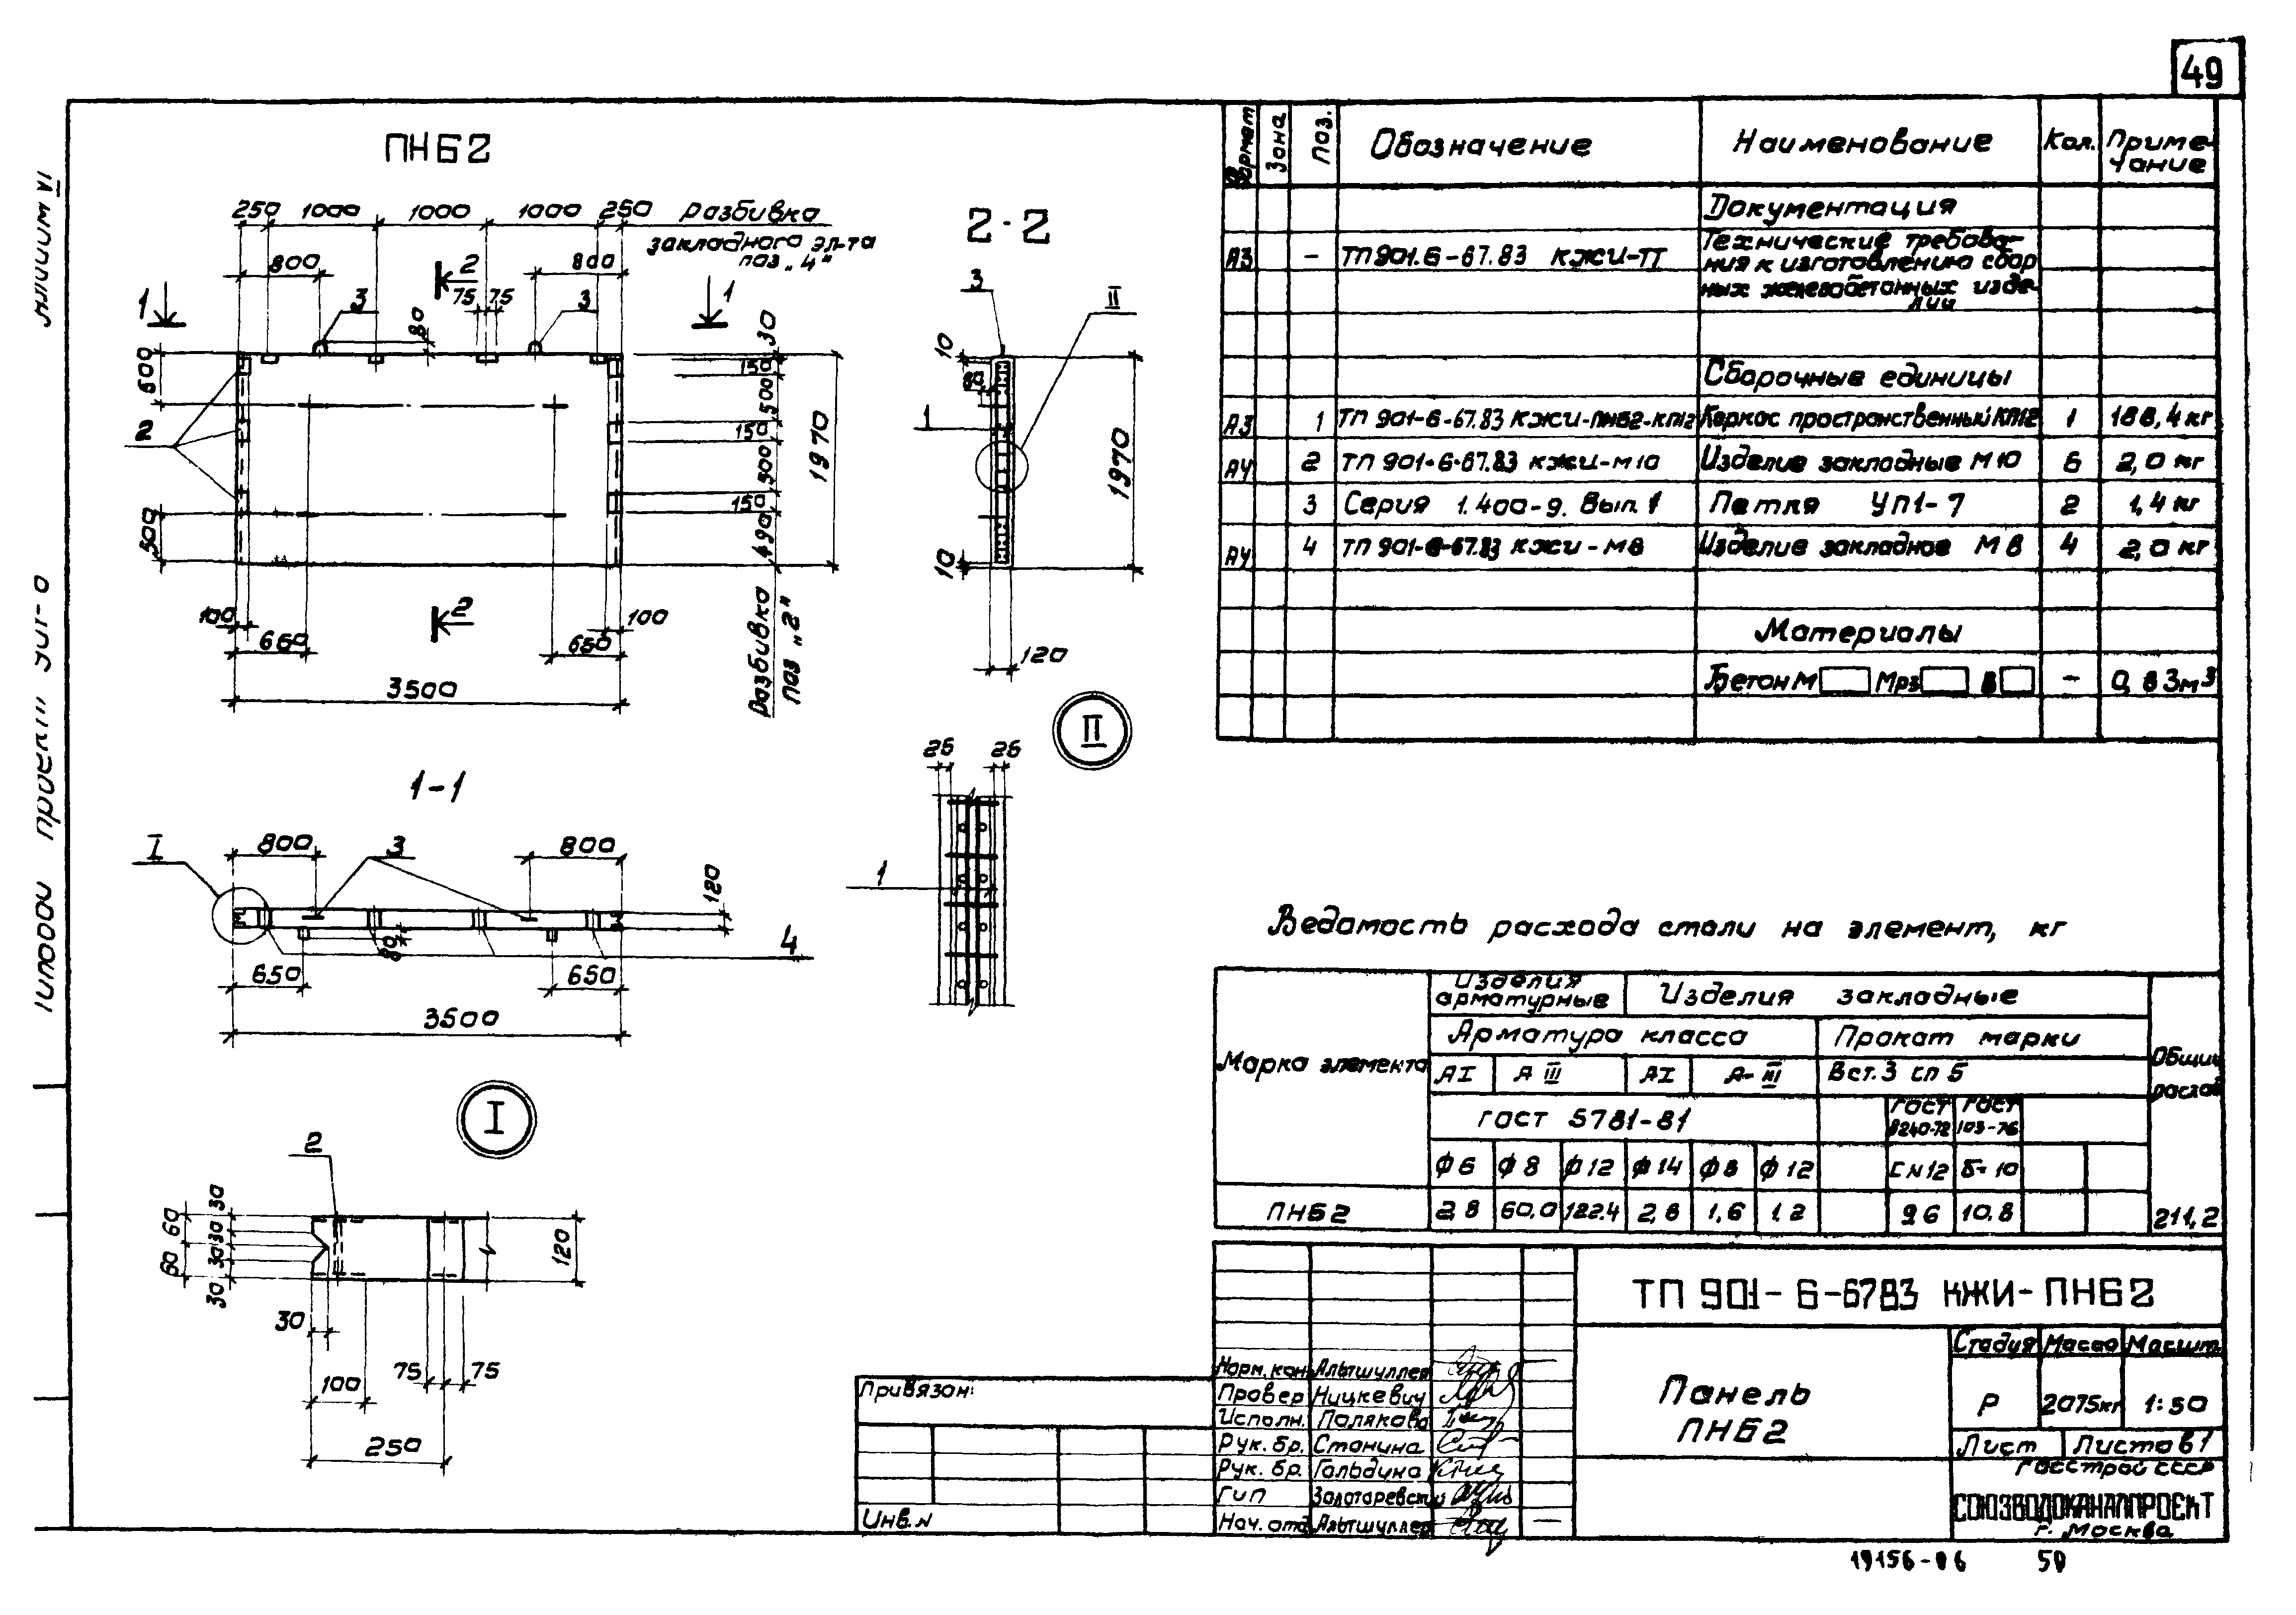 49
ПНБ2
250 1000 1000 1000 250 Разбивка
закладного эл-та
поз „4"
800 2 800
75 75
1 3 3 1
80 30
600 150
500
2 150 1970
500
150
500 490
100 2 100
660 650
3500
Разбивка
поз „2"
2-2
3 II
10
80
1
1970
10
120
II
26 26
1
1-1
I 800 3 800
120
80 4
650 650
3500
I
2
30
60 30
60 30
30
120
30
75 75
100
250
Формат Зона Поз. Обозначение Наименование Кол. Приме-
чание
Документация
А3 – ТП 901.6-67.83 КЖИ-ТТ Технические требова-
ния к изготовлению сбор
ных железобетонных изде-
лий
Сборочные единицы
А3 1 ТП 901-6-67.83 КЖИ-ПНБ2-КП12 Каркас пространственный КП12 1 188,4 кг
А4 2 ТП 901-6-67.83 КЖИ-М10 Изделие закладные М10 6 2,0 кг
3 Серия 1.400-9. Вып. 1 Петля УП1-7 2 1,4 кг
А4 4 ТП 901-6-67.83 КЖИ-М8 Изделие закладное М8 4 2,0 кг
Материалы
Бетон М Мрз В – 0,83м³
Ведомость расхода стали на элемент, кг
Марка элемента Изделия
арматурные Изделия закладные Общий
расход
Арматура класса Прокат марки
АI А III АI А-III Вст.3 сп 5
ГОСТ 5781-81 ГОСТ
8240-72 ГОСТ
103-76
Ф6 Ф8 Ф12 Ф14 Ф8 Ф12 С№12 δ=10
ПНБ2 2,8 60,0 122.4 2,8 1,6 1.2 9.6 10.8 211,2
ТП 901-6-6783 КЖИ-ПНБ2
Панель
ПНБ2
Стадия Масса Масшт.
Р 2075кг 1:50
Лист Листов 1
Госстрой СССР
СОЮЗВОДОКАНАЛПРОЕКТ
г. Москва
Норм. кон. Альтшуллер
Провер Ницкевич
Исполн. Полякова
Рук. бр. Станина
Рук. бр. Гольдина
Гип Золотаревский
Нач. отд Альтшуллер
Привязан:
Инв. №
19156-06 50